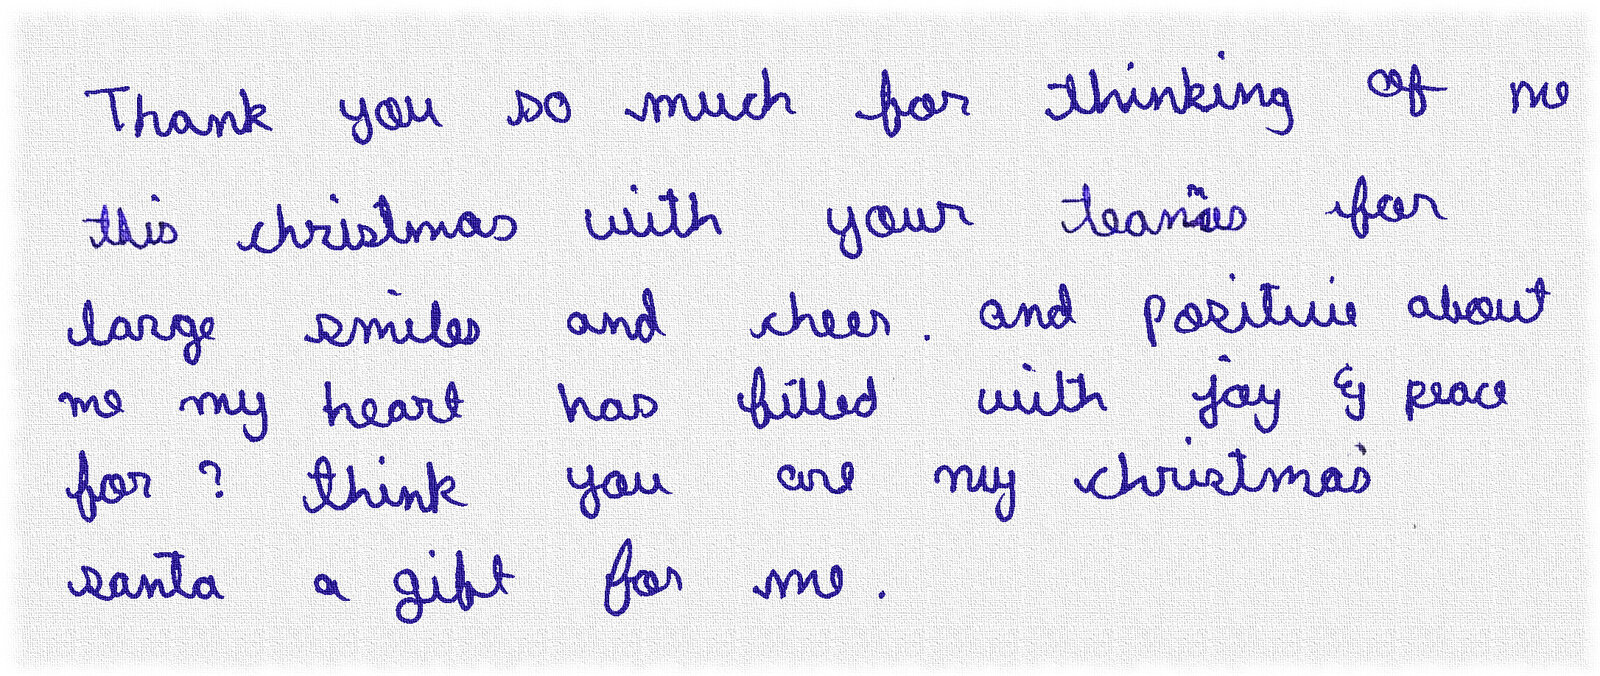 Thank you so much for thinking of me
this christmas with your for
large smiles and cheer. and positive about
me my heart has filled with joy & peace
for ? think you are my christmas
santa a gift for me.